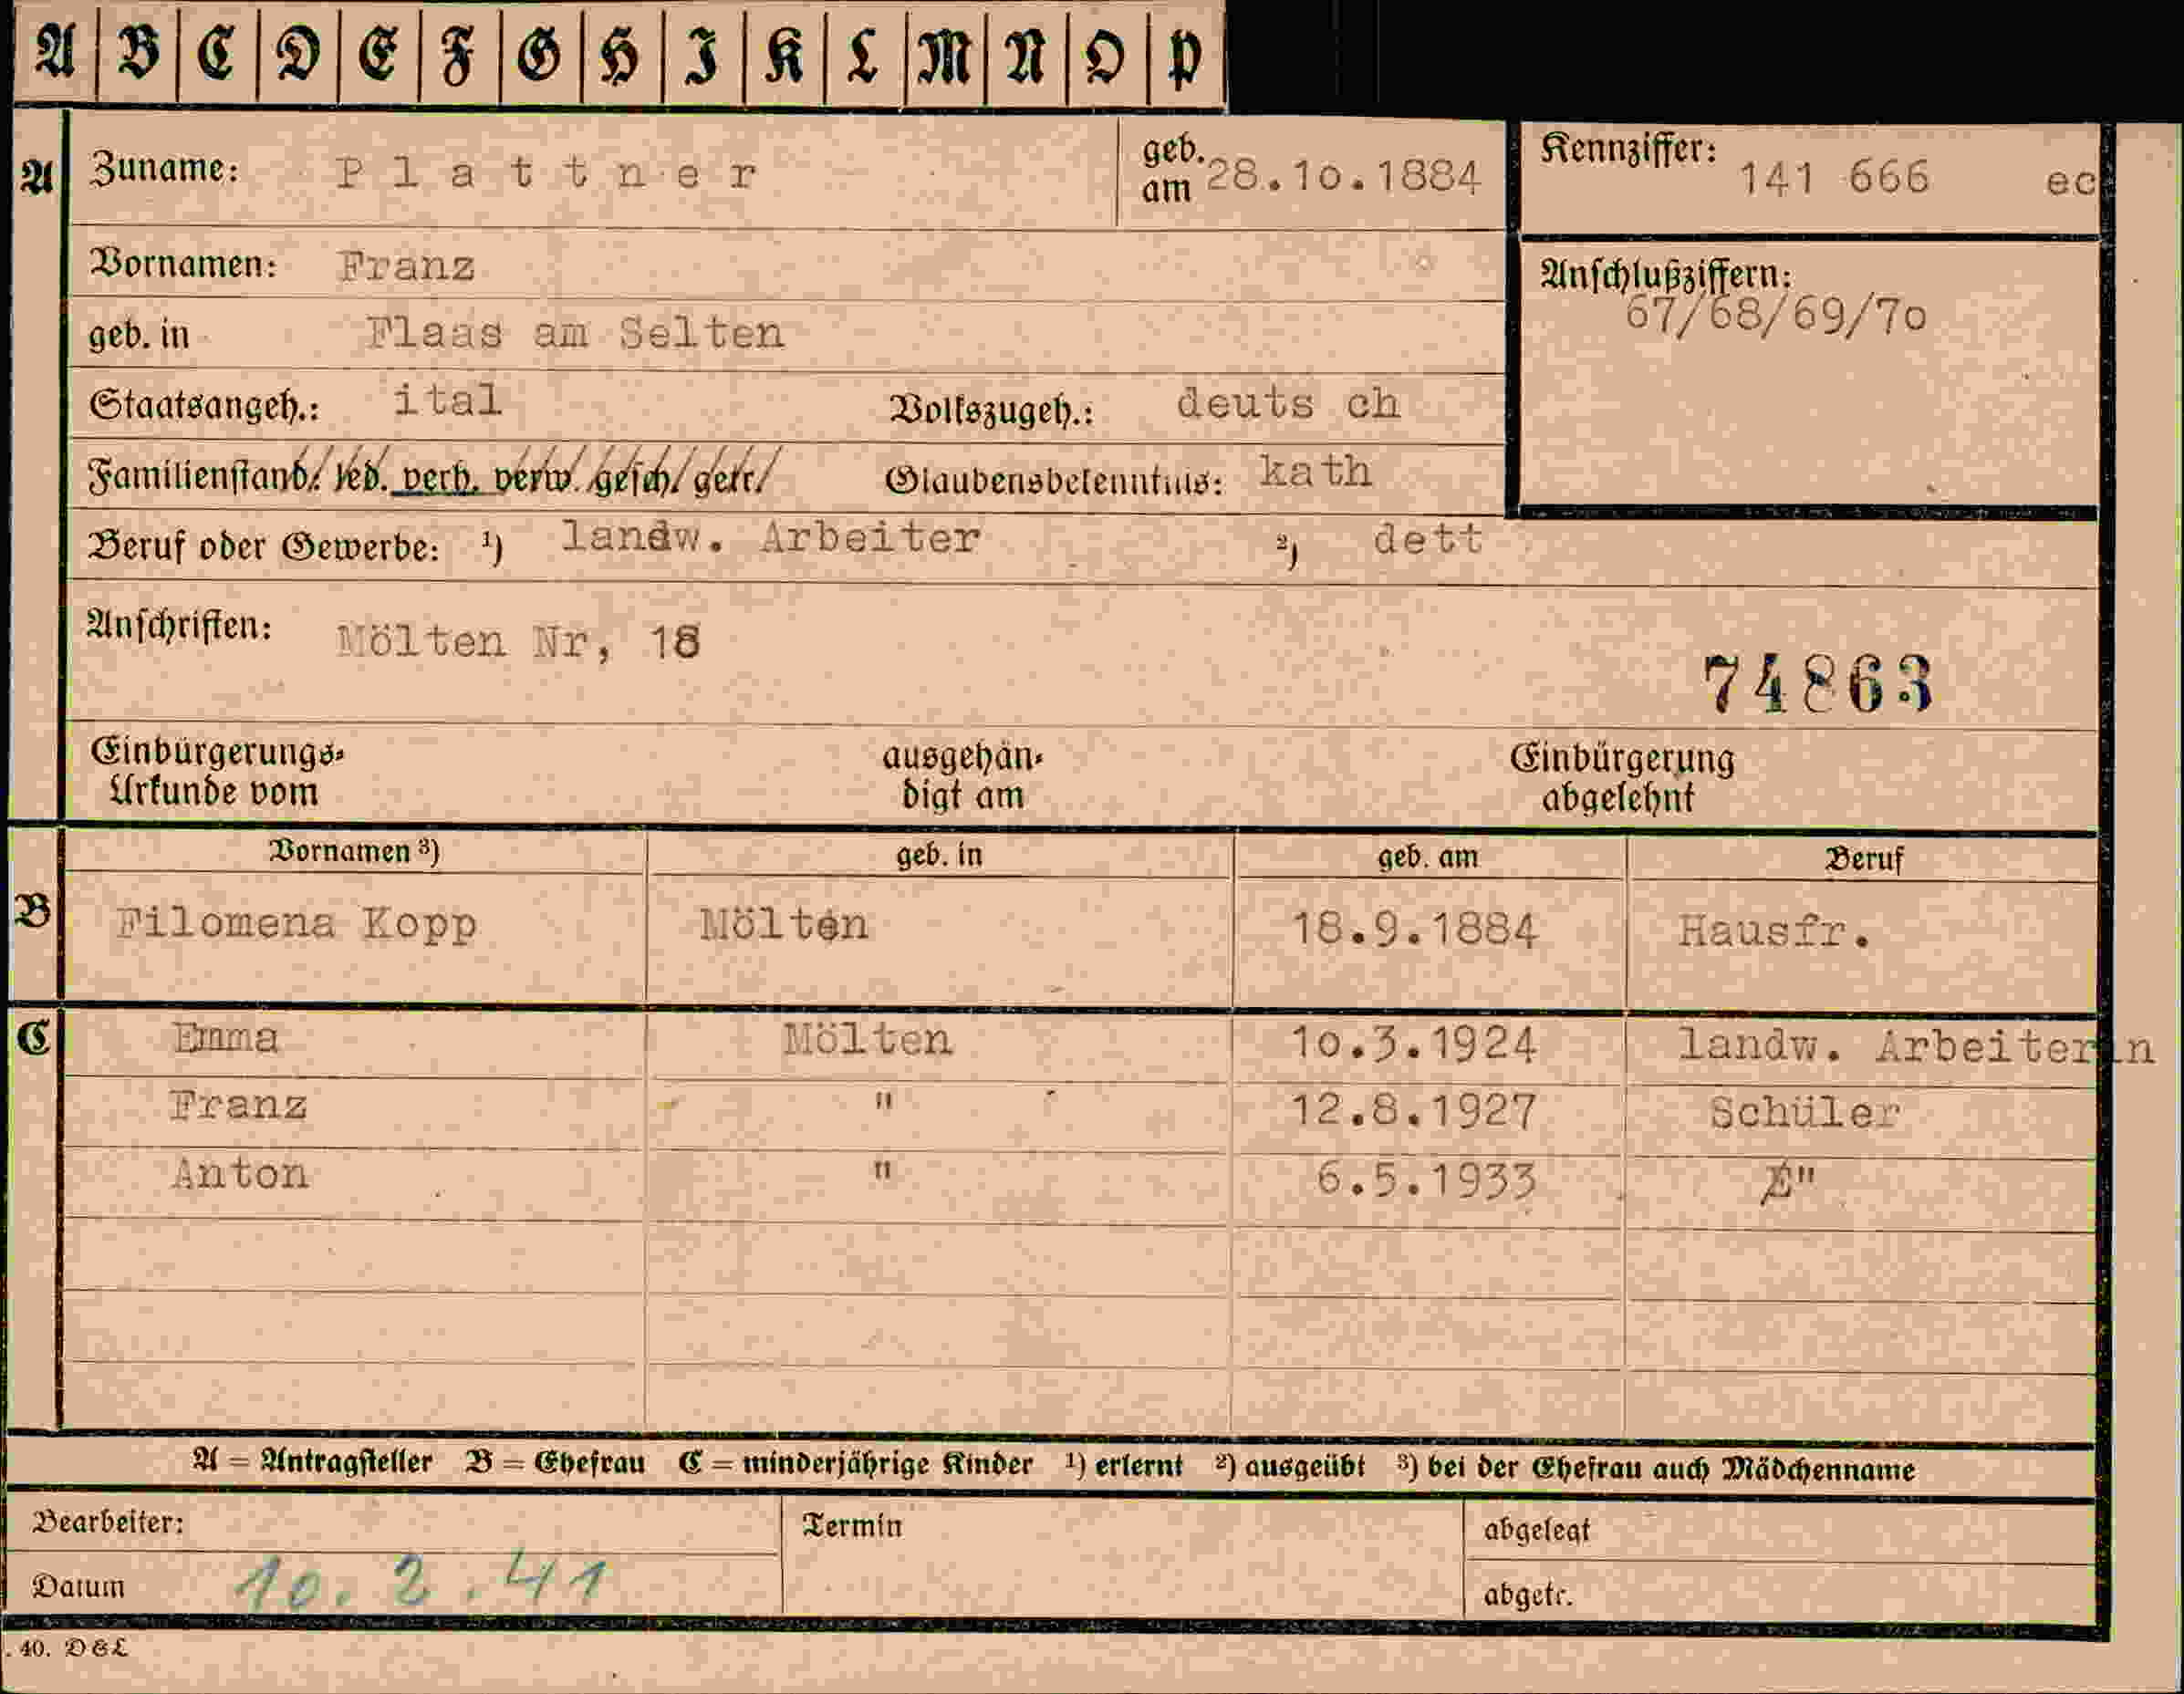 A B C D E F G H I K L M N O P
A Zuname: Plattner geb. am 28.10.1884 Kennziffer: 141 666 ec
Vornamen: Franz
Anschlußziffern: 67/68/69/70
geb. in Flaas am Selten
Staatsangeh.: ital Volkszugeh.: deuts ch
Familienstand: led. verh. verw. gesch. getr. Glaubensbekenntnis: kath
Beruf oder Gewerbe: ¹) landw. Arbeiter ²) dett
Anschriften: Mölten Nr, 18
74863
Einbürgerungs-Urkunde vom ausgehän-digt am Einbürgerung abgelehnt
Vornamen ³) geb. in geb. am Beruf
B Filomena Kopp Mölten 18.9.1884 Hausfr.
C Emma Mölten 10.3.1924 landw. Arbeiterin
Franz " 12.8.1927 Schüler
Anton " 6.5.1933 "
A = Antragsteller B = Ehefrau C = minderjährige Kinder ¹) erlernt ²) ausgeübt ³) bei der Ehefrau auch Mädchenname
Bearbeiter: Termin abgelegt
Datum 10.2.41 abgetr.
. 40. DGL